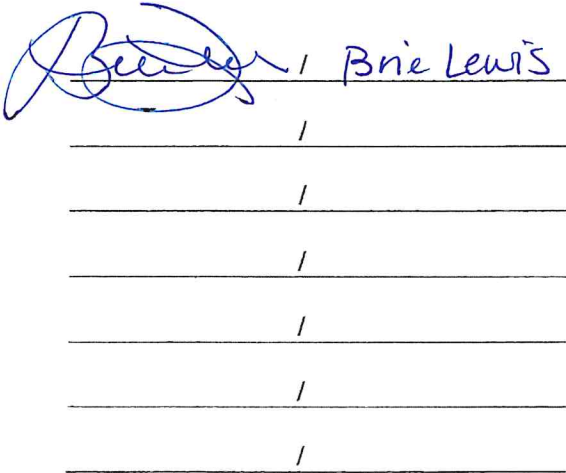 / Brie Lewis
/
/
/
/
/
/